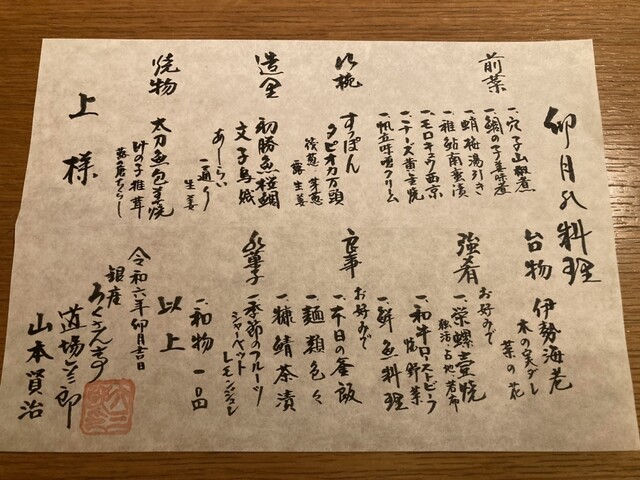 卯月の料理
前菜
一、穴子山椒煮
一、鯛の子生姜煮
一、蛸梅湯引き
一、稚鮎南蛮漬
一、モロキュウ西京
一、チーズ黄金焼
一、帆立味噌クリーム
吸椀
すっぽん
タピオカ万頭
焼葱 芽葱
露生姜
造里
初勝魚 桜鯛
文子烏賊
あしらい
一通り
生姜
焼物
太刀魚包み焼
竹の子 椎茸
蕗のとうちらし
上様
台物
伊勢海老
木の実ダレ
菜の花
強肴
お好みで
一、栄螺壺焼
独活 占地 若布
一、和牛ローストビーフ
焼野菜
一、鮮魚料理
食事
お好みで
一、本日の釜飯
一、麺類色々
一、糠鯖茶漬
水菓子
一、季節のフルーツ
シャーベット
レモンジュレ
一、和物 一品
以上
令和六年卯月吉日
銀座
ろくさん亭
道場六三郎
山本賢治